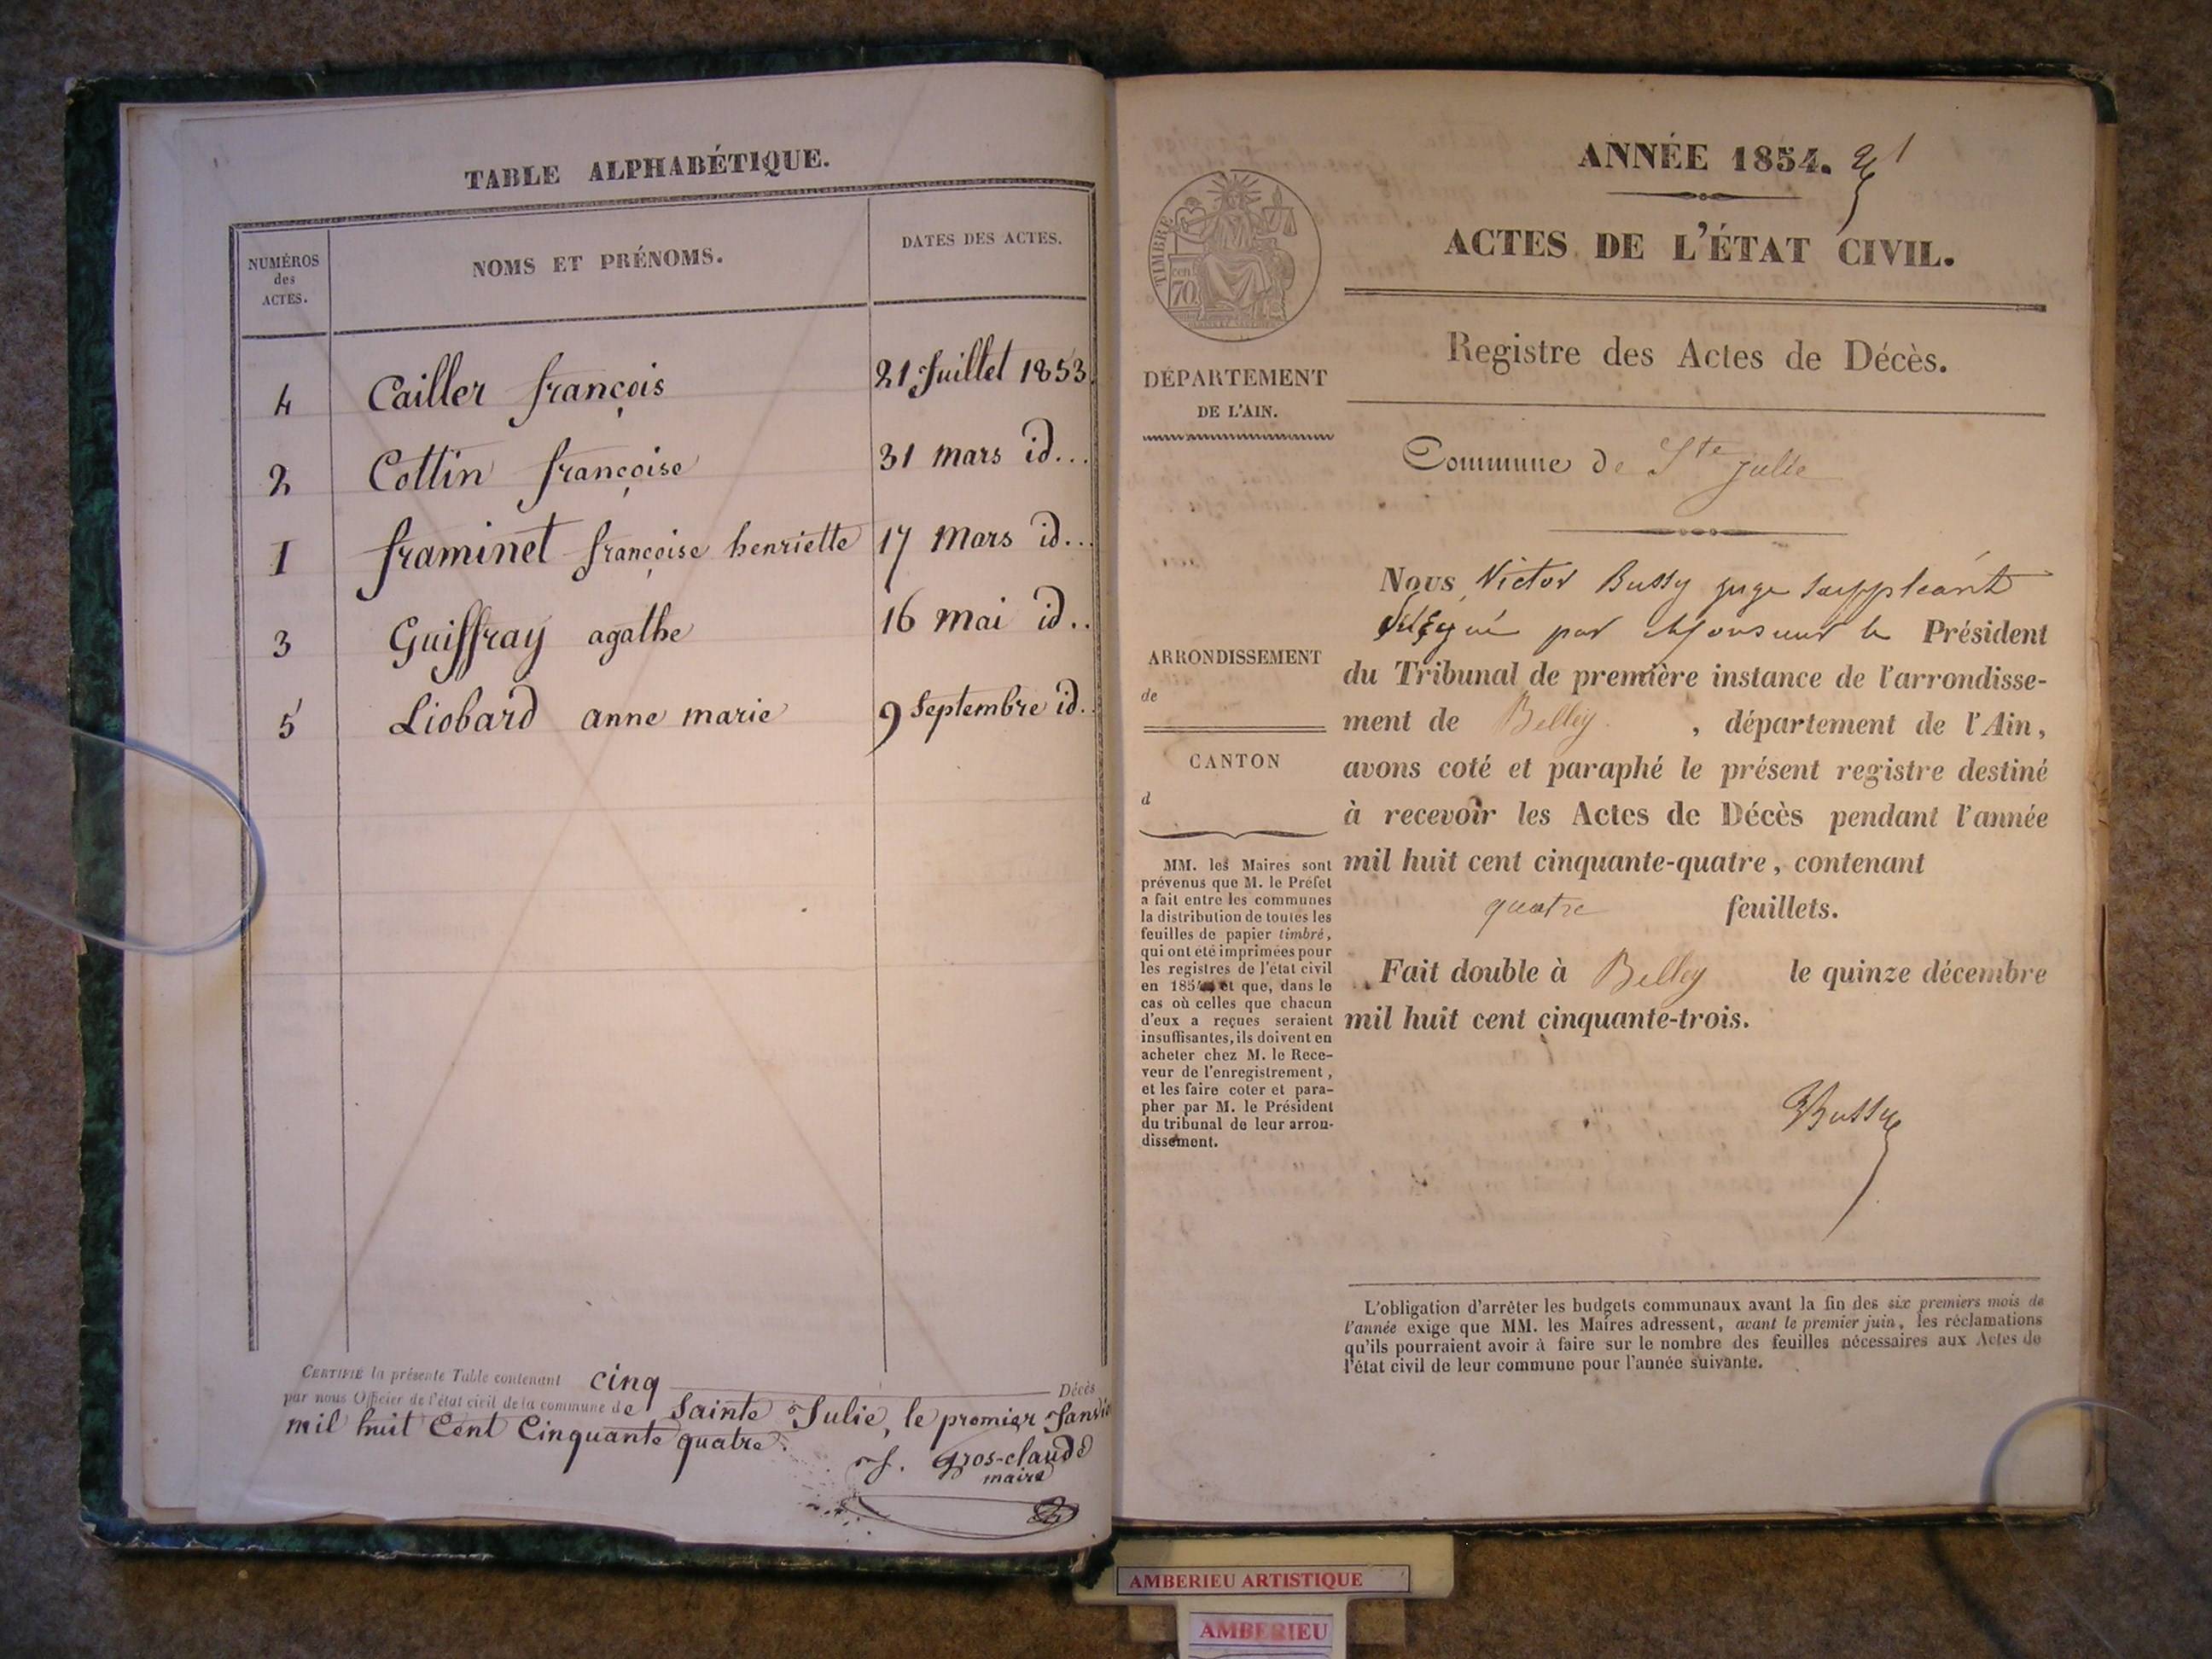 TABLE ALPHABÉTIQUE.
NUMÉROS
des
ACTES.
NOMS ET PRÉNOMS.
DATES DES ACTES.
4 Cailler françois 21 Juillet 1853.
2 Cottin françoise 31 mars id...
1 framinet françoise henriette 17 Mars id...
3 Guiffray agathe 16 mai id..
5 Liobard anne marie 9 Septembre id.
CERTIFIÉ la présente Table contenant cinq Décès
par nous Officier de l'état civil de la commune de Sainte Julie, le premier Janvier
mil huit Cent Cinquante quatre.
J. Gros-claude
maire
ANNÉE 1854.
ACTES DE L'ÉTAT CIVIL.
TIMBRE
70 cent
Registre des Actes de Décès.
DÉPARTEMENT
DE L'AIN.
Commune de Ste Julie
Nous Victor Bussy juge Suppléant
délégué par Monsieur le Président
du Tribunal de première instance de l'arrondisse-
ment de Belley , département de l'Ain,
avons coté et paraphé le présent registre destiné
à recevoir les Actes de Décès pendant l'année
mil huit cent cinquante-quatre, contenant
quatre feuillets.
Fait double à Belley le quinze décembre
mil huit cent cinquante-trois.
VBussy
ARRONDISSEMENT
de
CANTON
d
MM. les Maires sont
prévenus que M. le Préfet
a fait entre les communes
la distribution de toutes les
feuilles de papier timbré,
qui ont été imprimées pour
les registres de l'état civil
en 1854 et que, dans le
cas où celles que chacun
d'eux a reçues seraient
insuffisantes, ils doivent en
acheter chez M. le Rece-
veur de l'enregistrement,
et les faire coter et para-
pher par M. le Président
du tribunal de leur arron-
dissement.
L'obligation d'arrêter les budgets communaux avant la fin des six premiers mois de
l'année exige que MM. les Maires adressent, avant le premier juin, les réclamations
qu'ils pourraient avoir à faire sur le nombre des feuilles nécessaires aux Actes de
l'état civil de leur commune pour l'année suivante.
AMBERIEU ARTISTIQUE
AMBERIEU